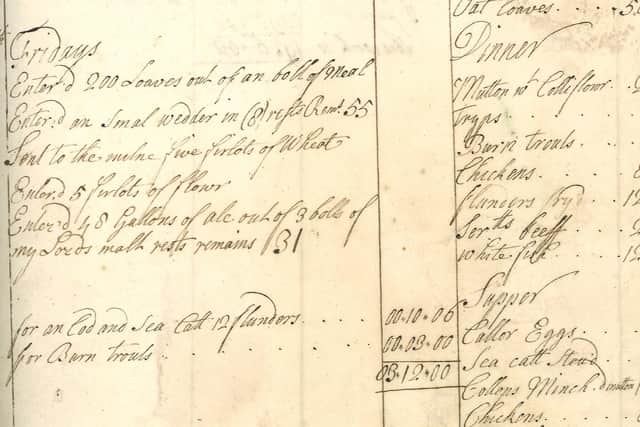 Fridays
Enter'd 200 Loaves out of an boll of Meal
Enter'd an Smal wedder in (8) rests Rem: 55
Sent to the milne five firlots of Wheat
Enter'd 5 firlots of flowr
Enter'd 48 Gallons of ale out of 3 bolls of
my Lords malt rests remains 31
for an Cod and Sea Catt 12 flunders . . . . 00-10-06
for Burn trouts . . . . 00-03-00
03-12-00
Oat Loaves
Dinner
Mutton wt Colliflowr
Tryps
Burn trouts
Chickens
flunders fryd
beeff
white fish
Supper
Caller Eggs
Sea catt Stowd
Collops Minchd
Chickens